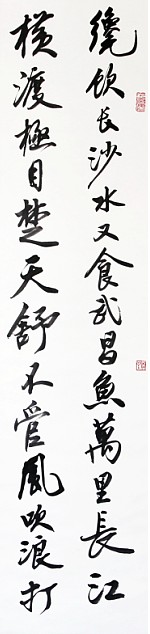 纔饮长沙水又食武昌鱼萬里長江
横渡極目楚天舒不管風吹浪打